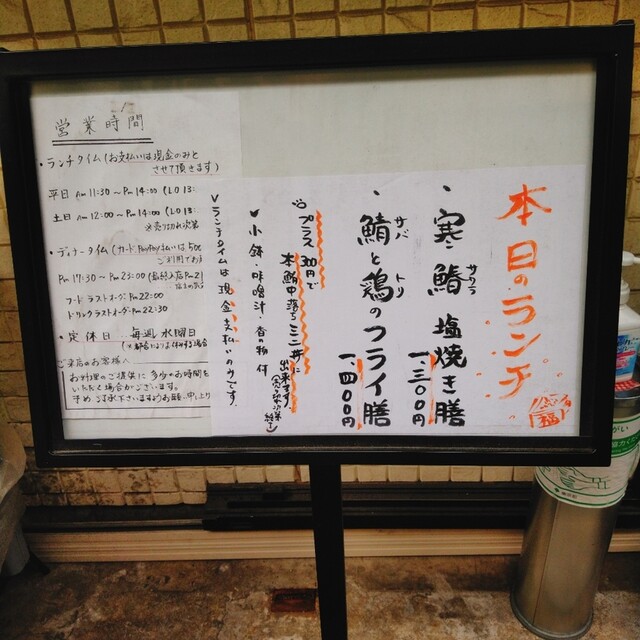 営業時間
・ランチタイム(お支払いは現金のみと
させて頂きます)
平日 Am 11:30 ~ Pm 14:00 (LO 13:
土日 Am 12:00 ~ Pm 14:00 (LO 13:
※売り切れ次第
・ディナータイム(カード・PayPay払いは
ご利用でき
Pm 17:30 ~ Pm 23:00 (最終入店 Pm 2
フードラストオーダー Pm 22:00
ドリンクラストオーダー Pm 22:30
・定休日 毎週水曜日
ご来店のお客様へ
お料理のご提供に多少お時間を
いただく場合がございます。
予めご了承下さいますようお願い申し上げ
本日のランチ
・寒鰆塩焼き膳
サワラ
一、三〇〇円
・鯖と鶏のフライ膳
サバ トリ
一、四〇〇円
プラス
円で
本鮪中落ちミニ丼に
出来ます。
∨小鉢・味噌汁・香の物付
∨ランチタイムは現金支払いのみです。